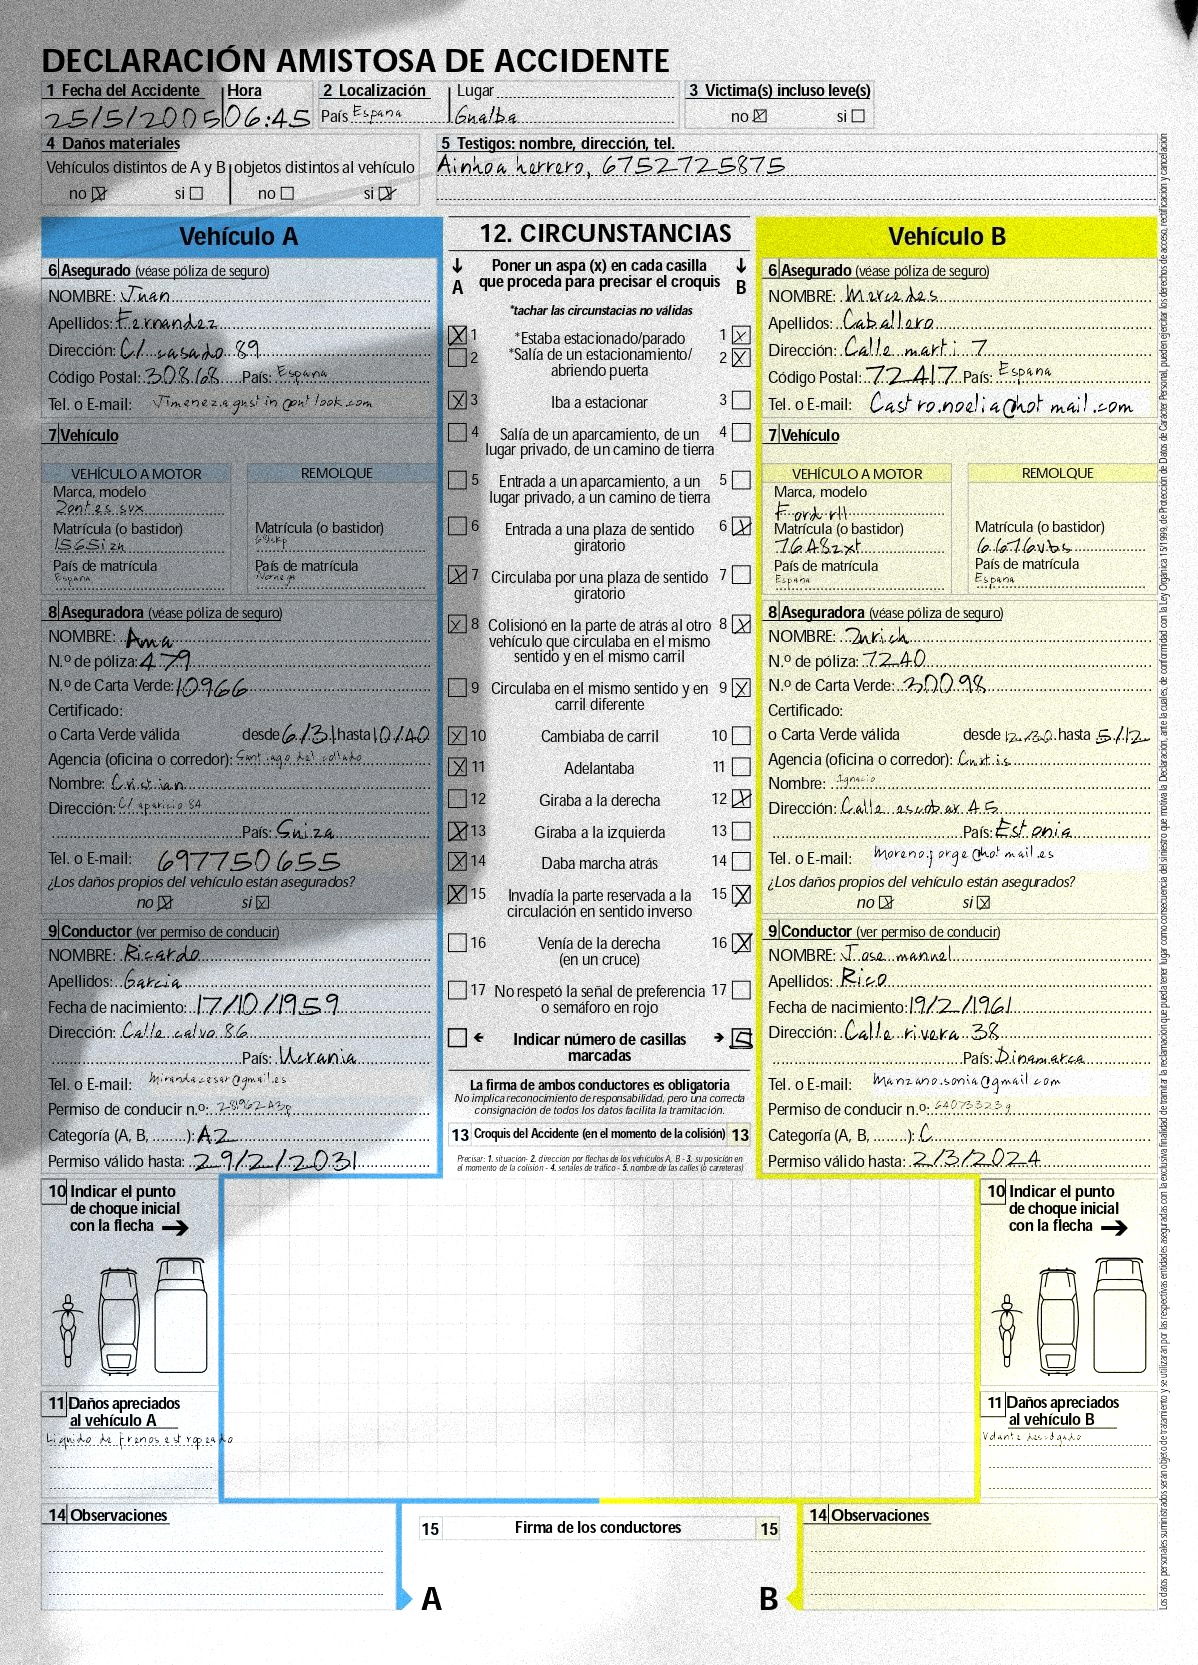 DECLARACIÓN AMISTOSA DE ACCIDENTE
1 Fecha del Accidente Hora 2 Localización Lugar 3 Victima(s) incluso leve(s)
25/5/2005 06:45 País España Gualba no si
4 Daños materiales
Vehículos distintos de A y B objetos distintos al vehículo
no si no si
5 Testigos: nombre, dirección, tel.
Ainhoa herrero, 6752725875
Vehículo A
6 Asegurado (véase póliza de seguro)
NOMBRE: Juan
Apellidos: Fernandez
Dirección: C/ casado 89
Código Postal: 30868 País: España
Tel. o E-mail: Jimenez.agustin@outlook.com
7 Vehículo
VEHÍCULO A MOTOR REMOLQUE
Marca, modelo
Zontes svx
Matrícula (o bastidor) Matrícula (o bastidor)
1565izn
País de matrícula País de matrícula
España Noruega
8 Aseguradora (véase póliza de seguro)
NOMBRE: Ama
N.º de póliza: 479
N.º de Carta Verde: 10966
Certificado:
o Carta Verde válida desde 6/31 hasta 10/40
Agencia (oficina o corredor): Santiago del collado
Nombre: Cristian
Dirección: C/ aparicio 84
País: Suiza
Tel. o E-mail: 697750655
¿Los daños propios del vehículo están asegurados?
no si
9 Conductor (ver permiso de conducir)
NOMBRE: Ricardo
Apellidos: Garcia
Fecha de nacimiento: 17/10/1959
Dirección: Calle calvo 86
País: Ucrania
Tel. o E-mail: Mirandacesar@gmail.es
Permiso de conducir n.º: 2896243p
Categoría (A, B, ........): A2
Permiso válido hasta: 29/2/2031
12. CIRCUNSTANCIAS
A Poner un aspa (x) en cada casilla que proceda para precisar el croquis B
*tachar las circunstacias no válidas
1 *Estaba estacionado/parado 1
2 *Salía de un estacionamiento/ abriendo puerta 2
3 Iba a estacionar 3
4 Salía de un aparcamiento, de un lugar privado, de un camino de tierra 4
5 Entrada a un aparcamiento, a un lugar privado, a un camino de tierra 5
6 Entrada a una plaza de sentido giratorio 6
7 Circulaba por una plaza de sentido giratorio 7
8 Colisionó en la parte de atrás al otro vehículo que circulaba en el mismo sentido y en el mismo carril 8
9 Circulaba en el mismo sentido y en carril diferente 9
10 Cambiaba de carril 10
11 Adelantaba 11
12 Giraba a la derecha 12
13 Giraba a la izquierda 13
14 Daba marcha atrás 14
15 Invadía la parte reservada a la circulación en sentido inverso 15
16 Venía de la derecha (en un cruce) 16
17 No respetó la señal de preferencia o semáforo en rojo 17
Indicar número de casillas marcadas 5
La firma de ambos conductores es obligatoria
No implica reconocimiento de responsabilidad, pero una correcta
consignación de todos los datos facilita la tramitación.
13 Croquis del Accidente (en el momento de la colisión) 13
Precisar: 1. situación- 2. dirección por flechas de los vehículos A, B - 3. su posición en
el momento de la colisión - 4. señales de tráfico - 5. nombre de las calles (o carreteras)
Vehículo B
6 Asegurado (véase póliza de seguro)
NOMBRE: Mercedes
Apellidos: Caballero
Dirección: Calle marti 7
Código Postal: 72417 País: España
Tel. o E-mail: Castro.noelia@hotmail.com
7 Vehículo
VEHÍCULO A MOTOR REMOLQUE
Marca, modelo
Ford rll
Matrícula (o bastidor) Matrícula (o bastidor)
7648zxt 6676vbs
País de matrícula País de matrícula
España España
8 Aseguradora (véase póliza de seguro)
NOMBRE: Zurich
N.º de póliza: 7240
N.º de Carta Verde: 30098
Certificado:
o Carta Verde válida desde 12/30 hasta 5/12
Agencia (oficina o corredor): Curtis
Nombre: Ignacio
Dirección: Calle escobar 45
País: Estonia
Tel. o E-mail: Moreno.jorge@hotmail.es
¿Los daños propios del vehículo están asegurados?
no si
9 Conductor (ver permiso de conducir)
NOMBRE: Jose manuel
Apellidos: Rico
Fecha de nacimiento: 19/2/1961
Dirección: Calle rivera 38
País: Dinamarca
Tel. o E-mail: Manzano.sonia@gmail.com
Permiso de conducir n.º: 64073323g
Categoría (A, B, ........): C
Permiso válido hasta: 2/3/2024
10 Indicar el punto
de choque inicial
con la flecha
11 Daños apreciados
al vehículo A
Liquido de frenos estropeado
10 Indicar el punto
de choque inicial
con la flecha
11 Daños apreciados
al vehículo B
Volante desolgado
14 Observaciones
15 Firma de los conductores 15
A B
14 Observaciones
Los datos personales suministrados serán objeto de tratamiento y se utilizarán por las respectivas entidades aseguradas con la exclusiva finalidad de tramitar la reclamación que pueda tener lugar como consecuencia del siniestro que motiva la Declaración, ante la cuales, de conformidad con la Ley Orgánica 15/1999, de Protección de Datos de Carácter Personal, pueden ejercitar los derechos de acceso, rectificación y cancelación